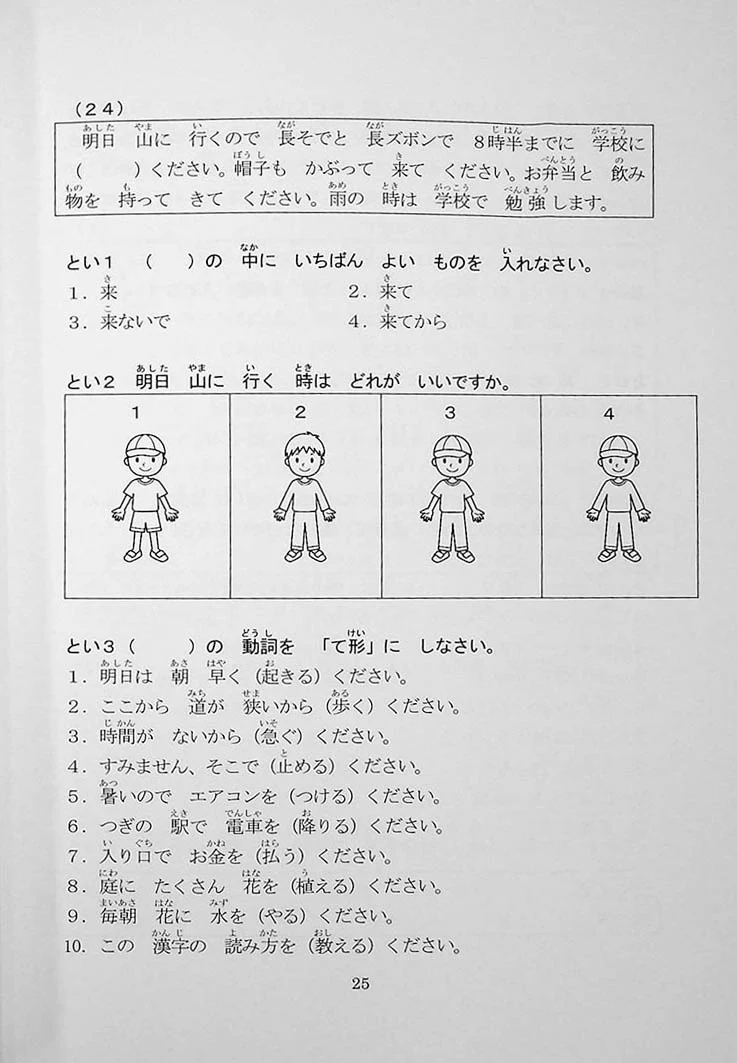 (24)
明日 山に 行くので 長そでと 長ズボンで 8時半までに 学校に
( )ください。帽子も かぶって 来て ください。お弁当と 飲み
物を 持って きて ください。雨の 時は 学校で 勉強します。
とい1 ( )の 中に いちばん よい ものを 入れなさい。
1. 来 2. 来て
3. 来ないで 4. 来てから
とい2 明日 山に 行く 時は どれが いいですか。
1 2 3 4
とい3 ( )の 動詞を 「て形」に しなさい。
1. 明日は 朝 早く(起きる)ください。
2. ここから 道が 狭いから(歩く)ください。
3. 時間が ないから(急ぐ)ください。
4. すみません、そこで(止める)ください。
5. 暑いので エアコンを(つける)ください。
6. つぎの 駅で 電車を(降りる)ください。
7. 入り口で お金を(払う)ください。
8. 庭に たくさん 花を(植える)ください。
9. 毎朝 花に 水を(やる)ください。
10. この 漢字の 読み方を(教える)ください。
25